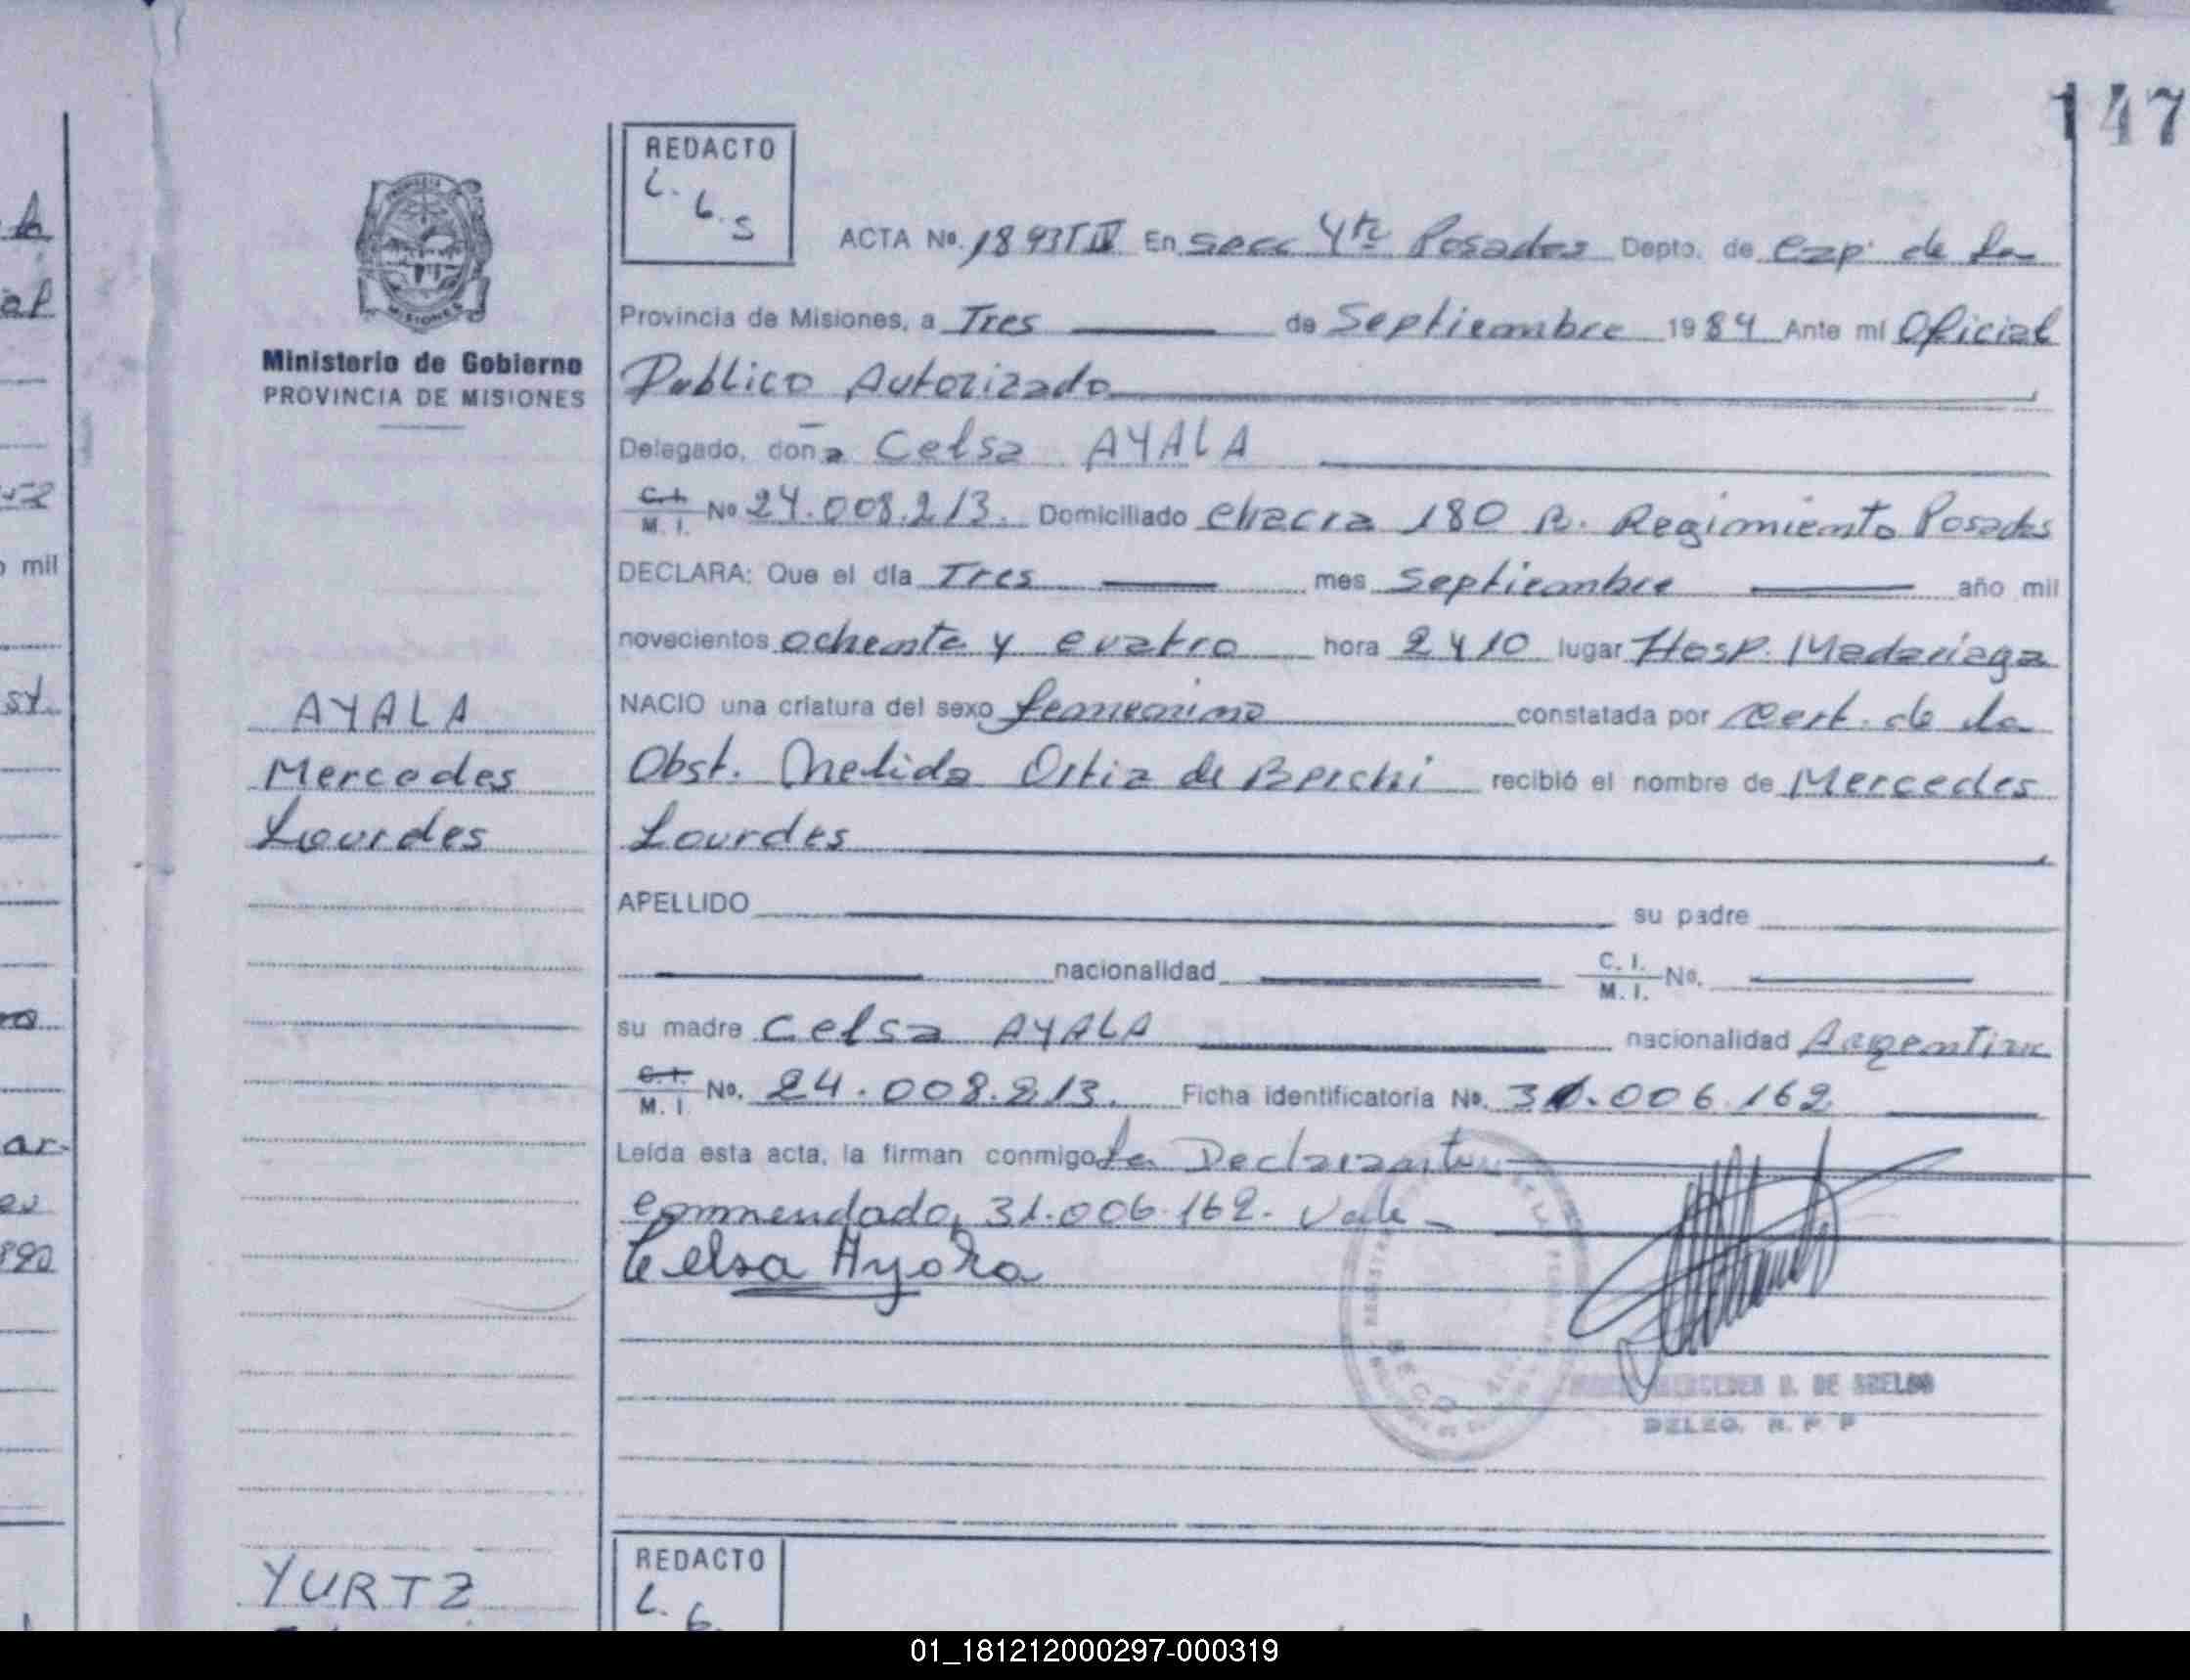 147
REDACTO
L. G. S
ACTA No. 1893 T IV En secc 4ta Posadas Depto. de Cap. de la
Provincia de Misiones, a Tres de Septiembre 1984 Ante mí Oficial
Publico Autorizado
Delegado, doña Celsa AYALA
C.I. M. I. No 24.008.213. Domiciliado chacra 180 R. Regimiento Posadas
DECLARA: Que el día Tres mes Septiembre año mil
novecientos ochenta y cuatro hora 2410 lugar Hosp. Madariaga
NACIO una criatura del sexo femenino constatada por Cert. de la
Obst. Nelida Ortiz de recibió el nombre de Mercedes
Lourdes
APELLIDO su padre
nacionalidad C. I. M. I. No.
su madre Celsa AYALA nacionalidad Argentina
C.I. M. I No. 24.008.213. Ficha identificatoria No. 31.006.162
Leída esta acta, la firman conmigo la Declarante
enmendado, 31.006.162. Vale
Celsa Ayala
MERCEDES DE
DELEG. R. P. P
Ministerio de Gobierno
PROVINCIA DE MISIONES
AYALA
Mercedes
Lourdes
YURTZ
REDACTO
L. G.
mil
st.
ar-
01_181212000297-000319